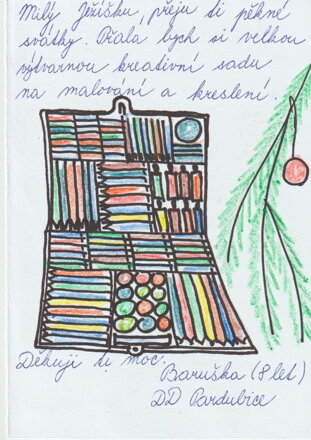 Milý Ježíšku, přeju ti pěkné
svátky. Přála bych si velkou
výtvarnou kreativní sadu
na malování a kreslení.
Děkuji ti moc.
Baruška (8 let)
DD Pardubice